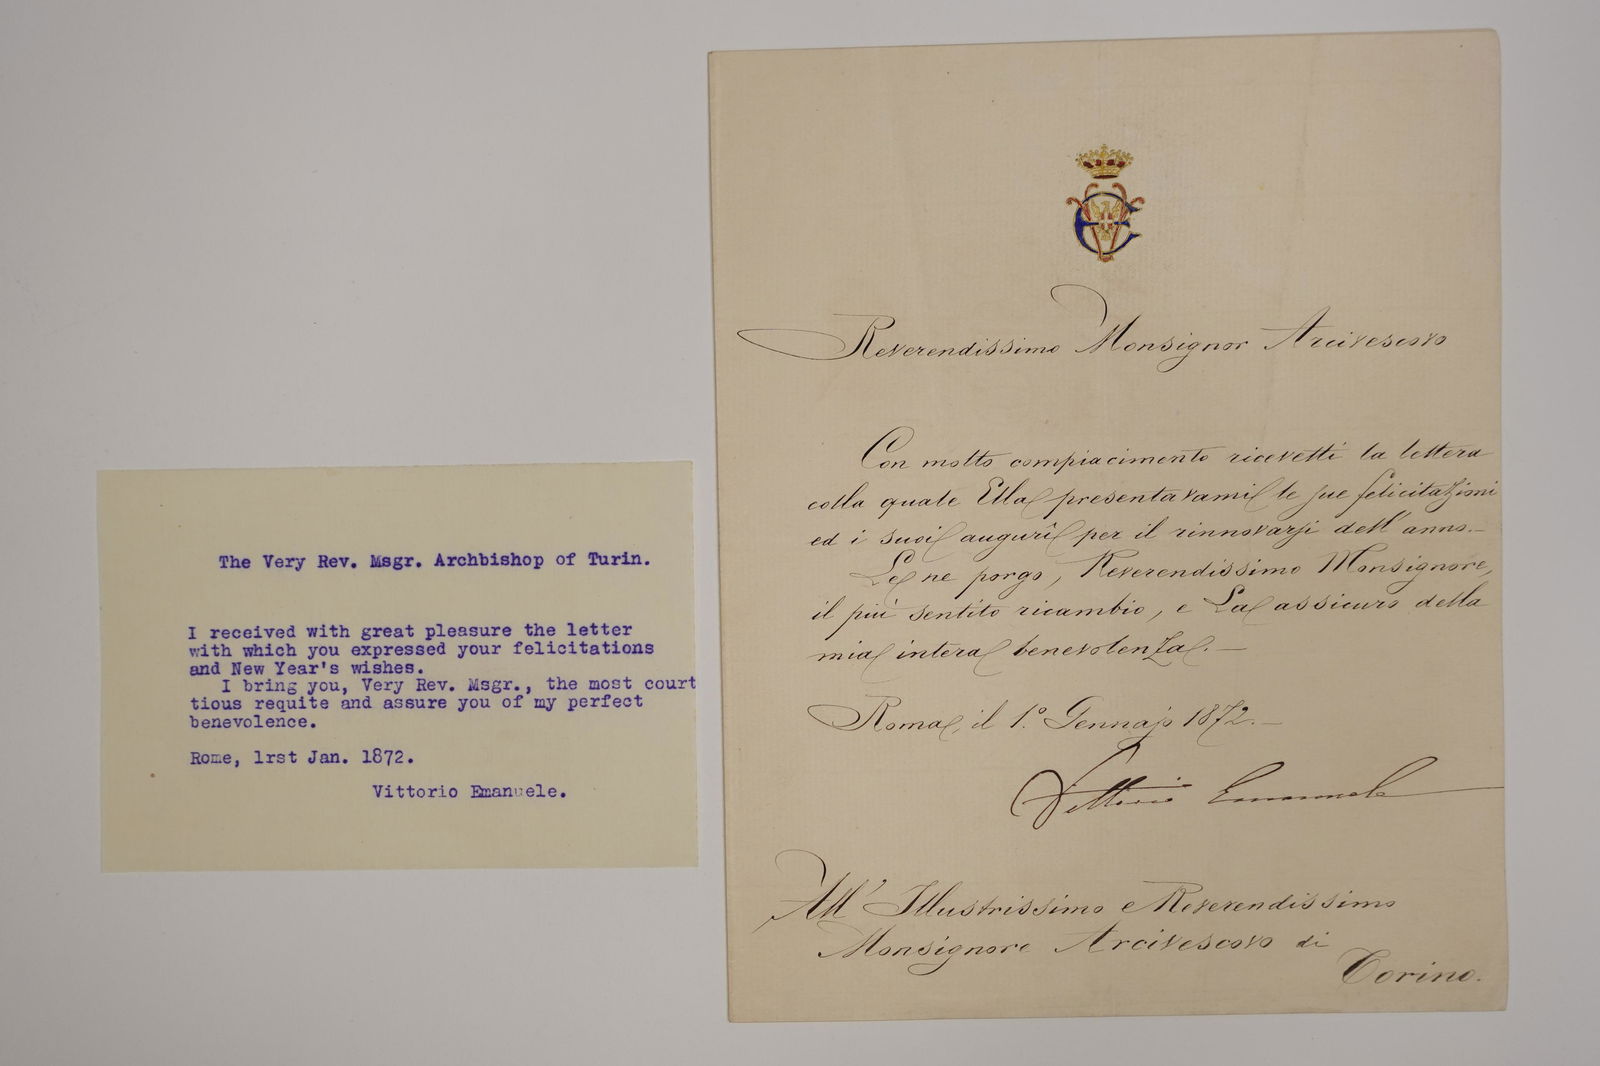 The Very Rev. Msgr. Archbishop of Turin.
I received with great pleasure the letter
with which you expressed your felicitations
and New Year's wishes.
I bring you, Very Rev. Msgr., the most court
tious requite and assure you of my perfect
benevolence.
Rome, 1rst Jan. 1872.
Vittorio Emanuele.
Reverendissimo Monsignor Arcivescovo
Con molto compiacimento ricevetti la lettera
colla quale Ella presentavami le sue felicitazioni
ed i suoi augurî per il rinnovarsi dell'anno.—
Le ne porgo, Reverendissimo Monsignore,
il più sentito ricambio, e La assicuro della
mia intera benevolenza.—
Roma, il 1.° Gennajo 1872.—
Vittorio Emanuele
All' Illustrissimo e Reverendissimo
Monsignore Arcivescovo di
Torino.